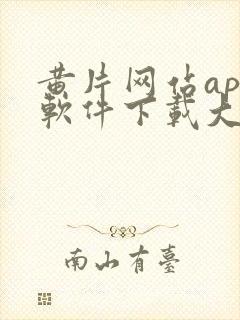 黄片网佔ap
軟件下載大
南山有臺